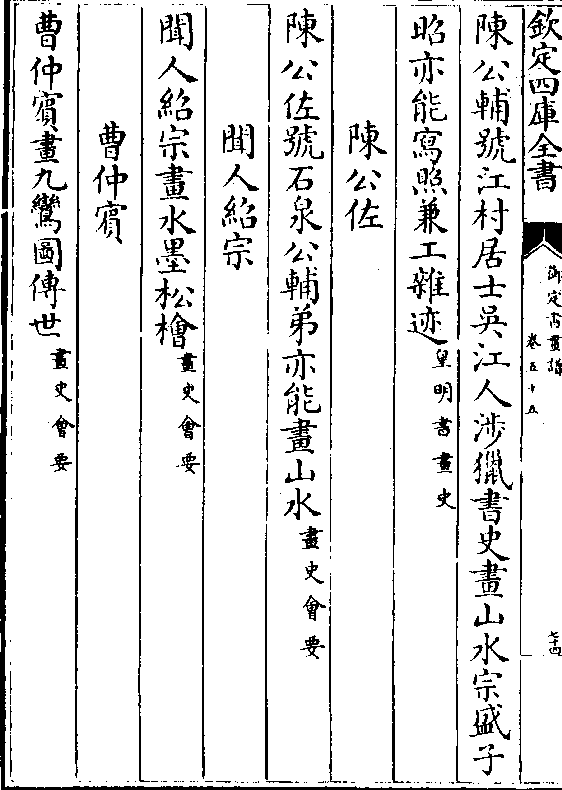 欽定四庫全書
御定書畫譜
卷五十五
七十四
陳公輔號江村居士吳江人涉獵書史畫山水宗盛子
昭亦能寫照兼工雜迹皇明書畫史
陳公佐
陳公佐號石泉公輔弟亦能畫山水畫史會要
聞人紹宗
聞人紹宗畫水墨松檜畫史會要
曹仲賔
曹仲賔畫九鸞圖傳世畫史會要